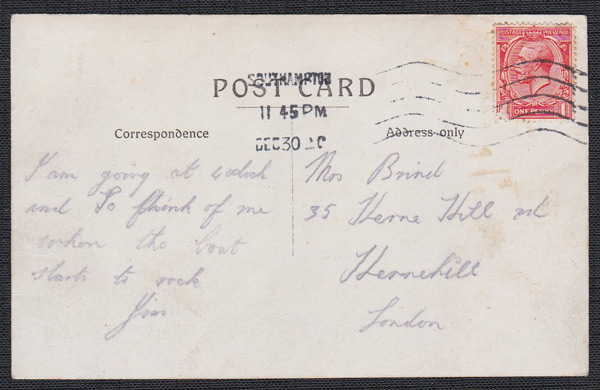 SOUTHAMPTON
POST CARD
11 45 PM
DEC 30
Correspondence
Address only
POSTAGE REVENUE
ONE PENNY
I am going at 4oclock
and To think of me
when the boat
starts to rock
Jim
Mrs Brind
35 Herne Hill rd
Hernehill
London